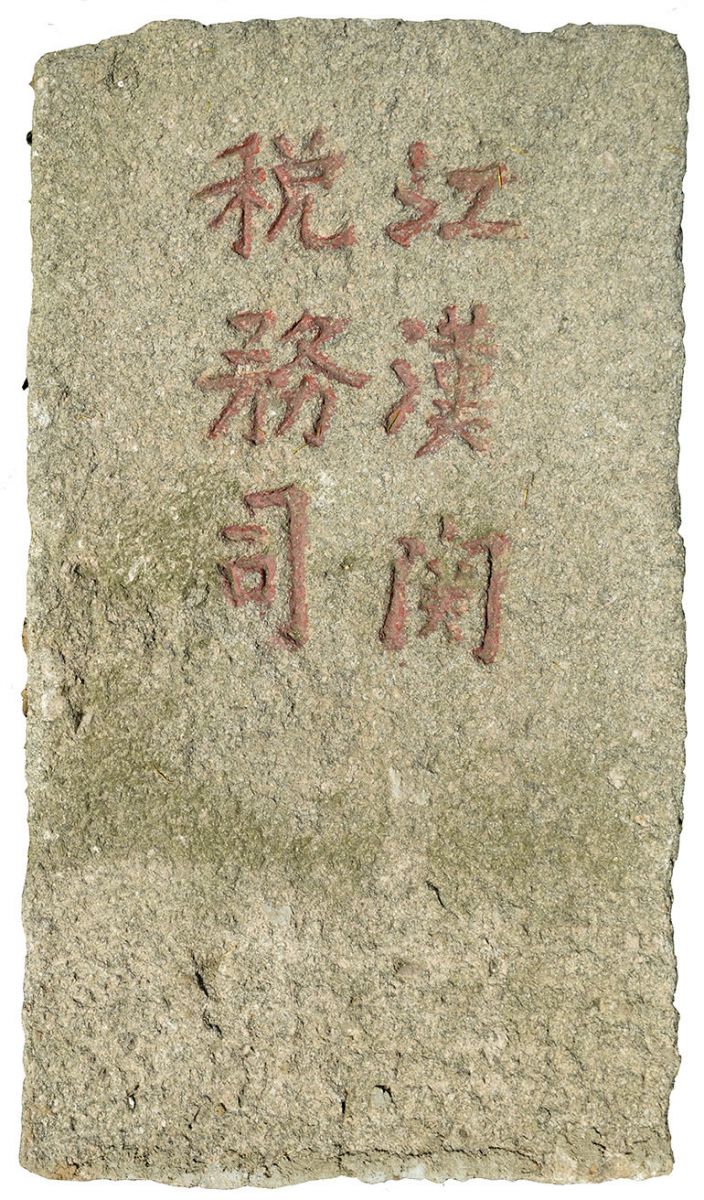 江漢関
税務司